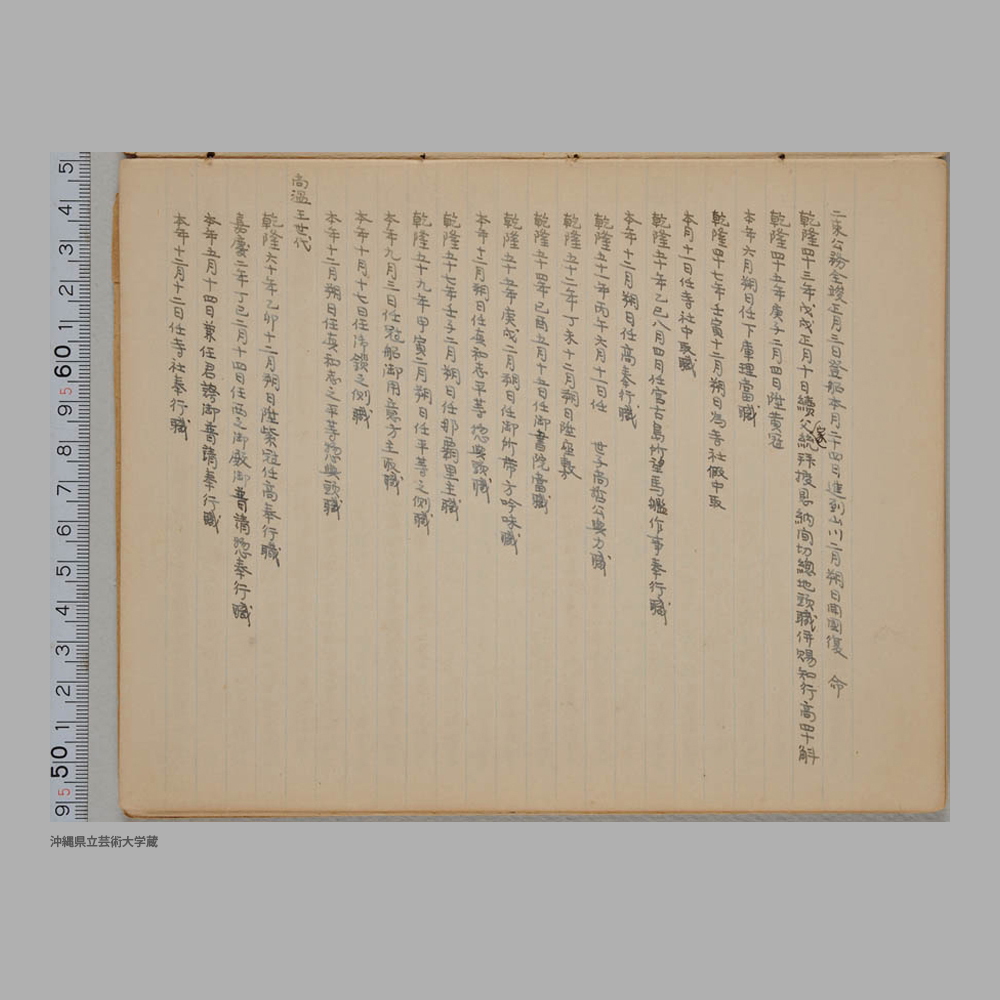 二來公務全竣正月三日登船本月二十四日進到山川二月朔日開國復 命
乾隆四十三年戊戌正月十日續父總拜授恩納間切總地頭職併賜知行高四十斛
乾隆四十五年庚子二月四日陞黄冠
本年六月朔日任下庫理當職
乾隆四十七年壬寅十二月朔日為寺社假中取
本月十一日任寺社中取職
乾隆五十年乙巳八月四日任宮古島所望馬艦作事奉行職
本年十二月朔日任高奉行職
乾隆五十一年丙午六月十一日任 世子尚哲公與力職
乾隆五十二年丁未十二月朔日陞座敷
乾隆五十四年己酉五月十五日任御書院當職
乾隆五十五年庚戌二月朔日任御所帶方吟味職
本年十二月朔日任真和志平等惣與頭職
乾隆五十七年壬子二月朔日任那覇里主職
乾隆五十九年甲寅二月朔日任平等之側職
本年九月三日任冠船御用意方主取職
本年十月十七日任御鎖之側職
本年十二月朔日任真和志之平等惣與頭職
尚溫王世代
乾隆六十年乙卯十二月朔日陞紫冠任高奉行職
嘉慶二年丁巳二月十四日任西之御殿御普請惣奉行職
本年五月十四日兼任君誇御普請奉行職
本年十二月十二日任寺社奉行職
沖縄県立芸術大学蔵